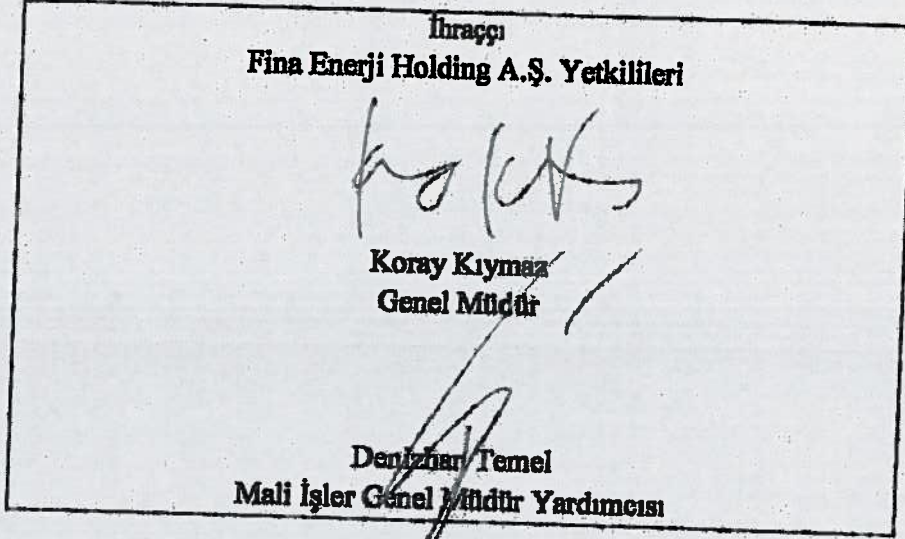 İhraççı
Fina Enerji Holding A.Ş. Yetkilileri
Koray Kıymaz
Genel Müdür
Denizhan Temel
Mali İşler Genel Müdür Yardımcısı